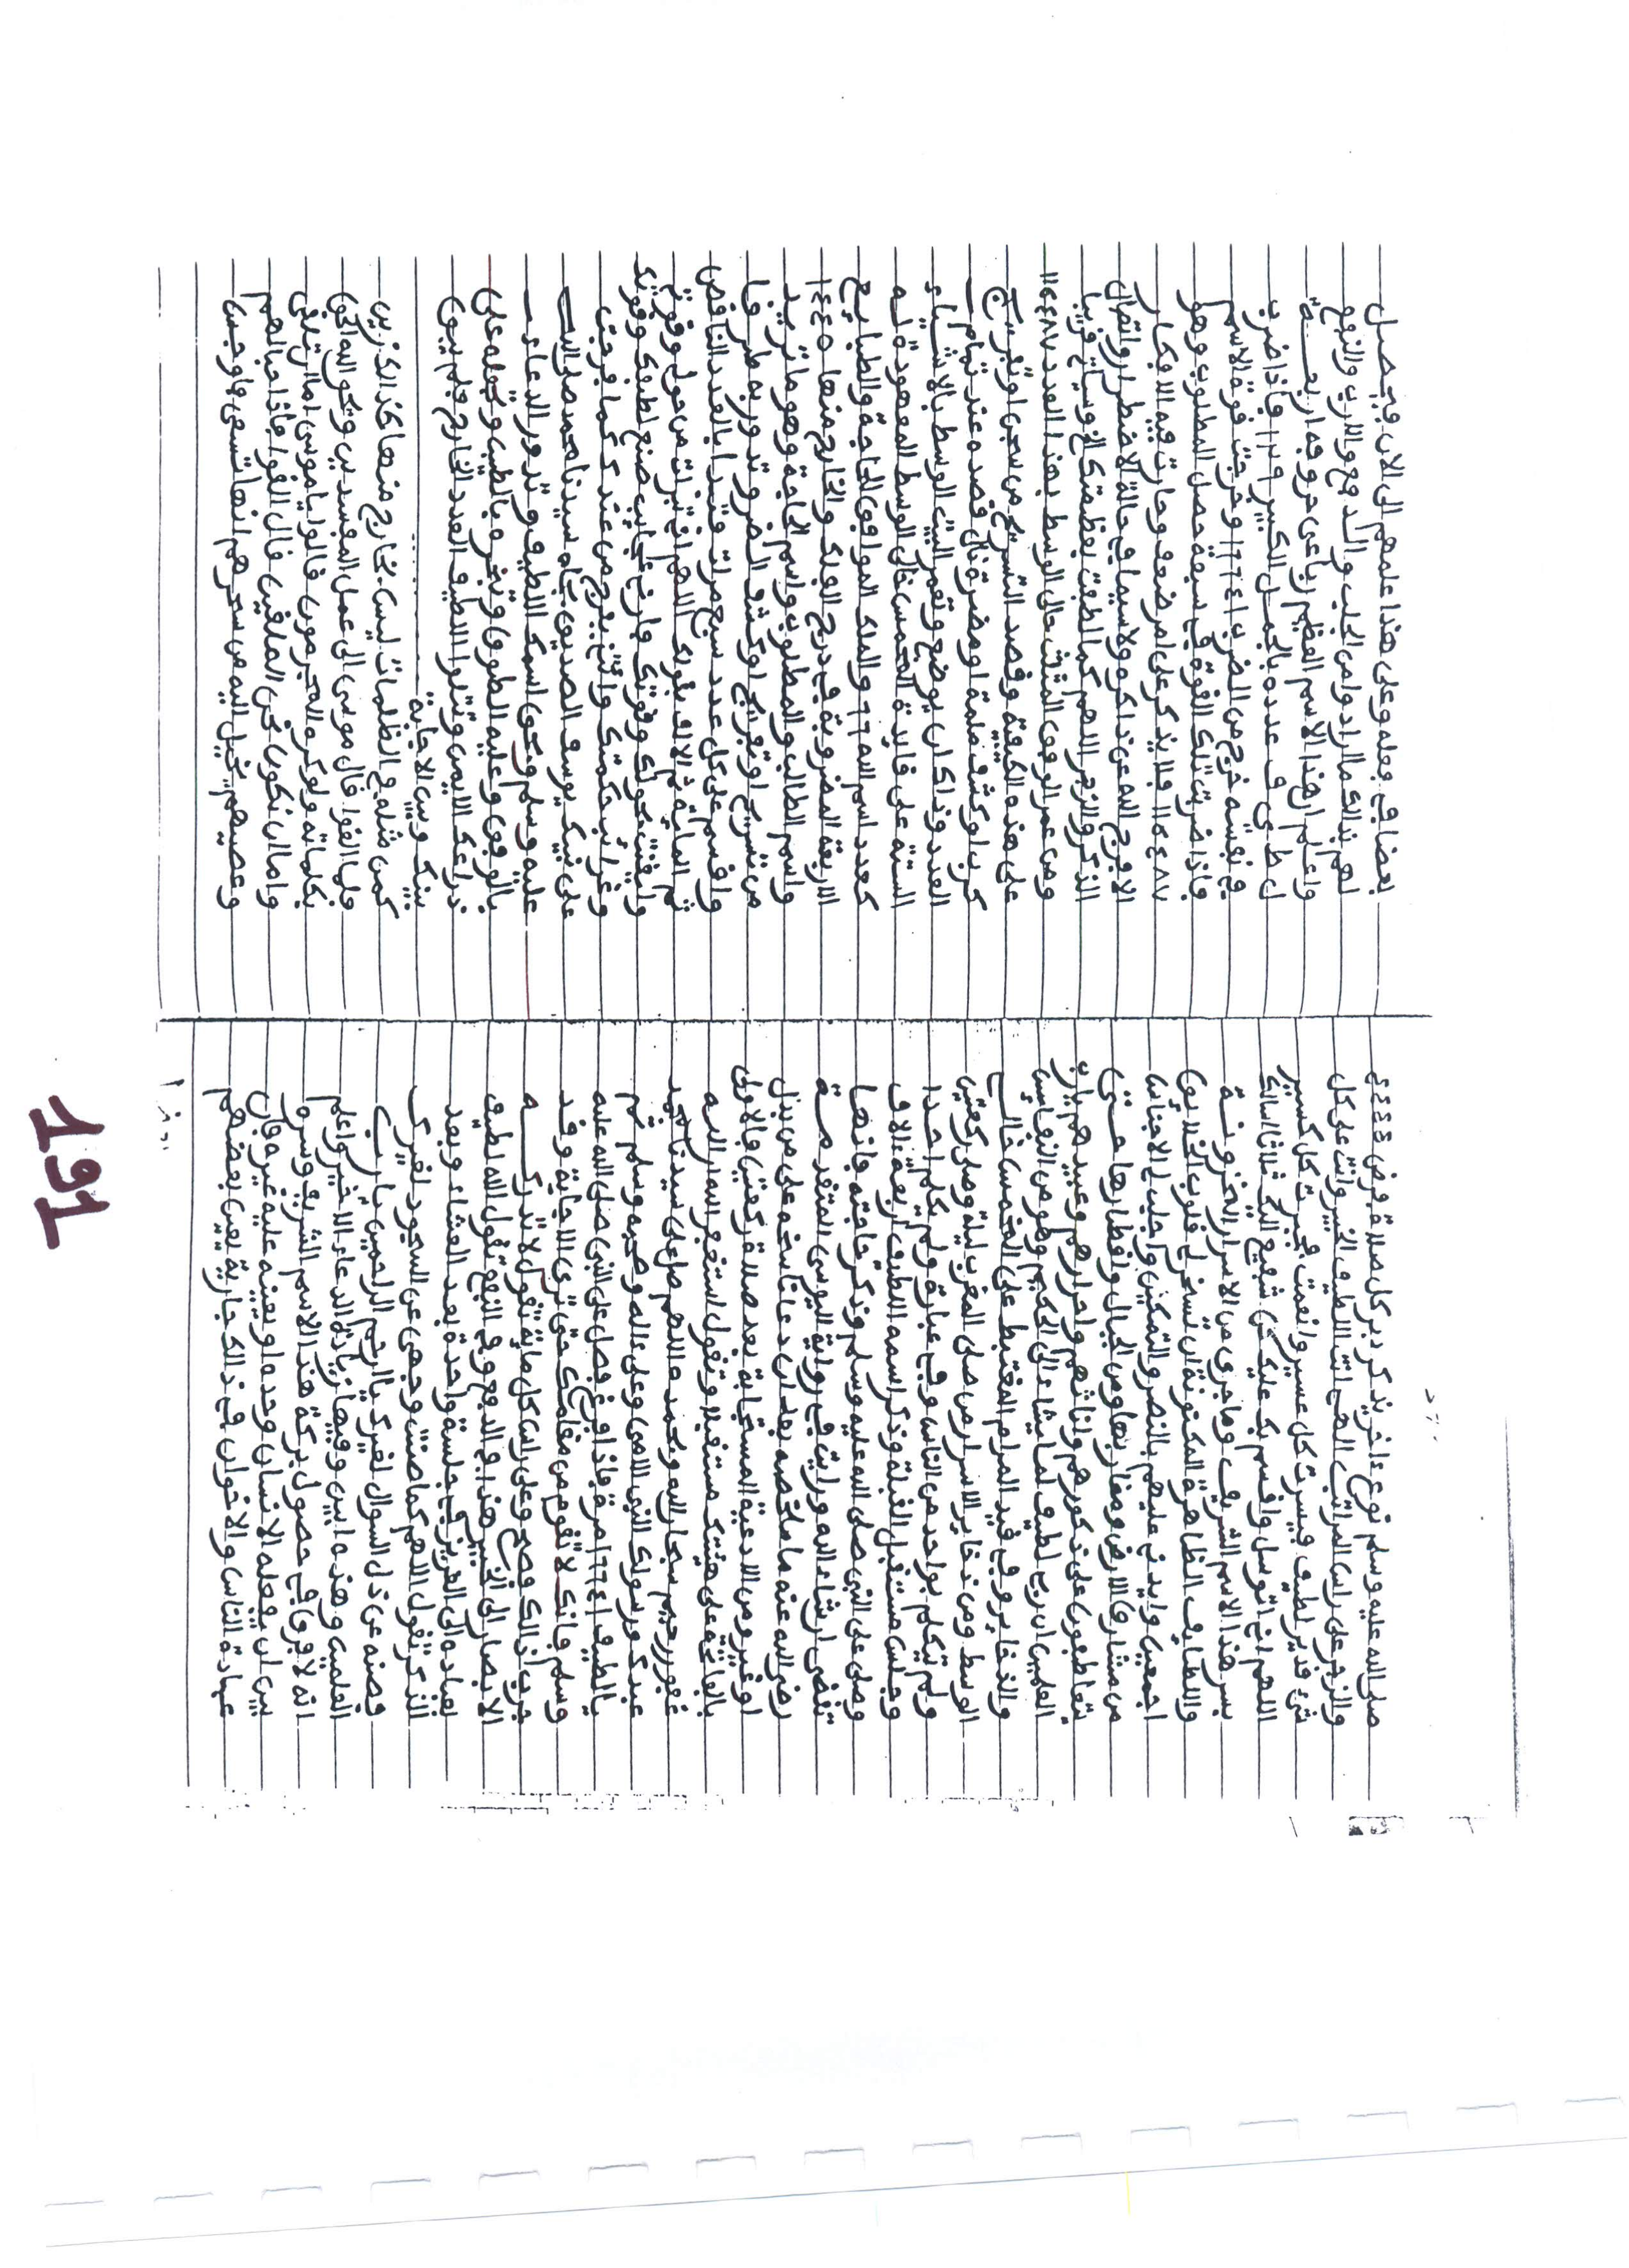 صلى الله عليه وسلم نوع ءاخر يذكر دبر كل صلاة فرض ٤٤٤٤
والزجر على راس المراتب الهى انت اللطيف الخبير وانت على كل
شىء قدير لطيف فيسرت كل عسير وانعمت فجبرت كل كسير
اللهم انى اتوسل واقسم بك عليك من شفيع اليك ثلاثا اسالك
بسر هذا الاسم الشريف وما جرى من الاسرار المخزونة
واللطايف الظاهرة المكنونة ان تسخر لى قلوب الخلايق
اجمعين وايدنى عليهم بالنصر والتمكين واجلب لى الاجناس
من مشارق الارض ومغاربها ومن الجبال واقطارها حتى
يتعاطفون على ذكورهم واناثهم واحرارهم وعبيدهم يارب
العلمين ان ربى لطيف لما يشاء الى الحكيم وهو من النفايس
والذخاير وفى قيد المرام المغتبط على المخمس خالى
الوسط ومن ذخاير الاسرار من صلى المغرب ليلة وصلى ركعتين
ولم يتكلم بواحد من الناس وفى عبارة ولم يكلم احدا
وجلس مستقبل القبلة وذكر اسمه اللطيف اربعة الاف
وصلى على النبى صلى الله عليه وسلم وذكر حاجته فانها
تقضى ان شاء الله ورايت فى رواية اليوسى المتقدمة
رضى الله عنه ما ملخصه بعد ان دعا ناسخه على من بذل
ومن الادعية المستجابة بعد صلاة ركعتين فالاولى
بالفاتحة على هيئتك مستقبلا وتقول استغفر الله ان الله
غفور رحيم سبحان الله وبحمده اللهم صل على سيدنا محمد
عبدك ورسولك النبى الامى وعلى اله وصحبه وسلم ثم
يالطيف ١٦٦٤١ مرة فاذا فرغ فصل على النبى صلى الله عليه
وسلم فانك لا تقوم من مقامك حتى ترى الاجابة وقد
جرب ذالك وصح وعلى راس كل ماية تقول لا تدركه
الابصار الى الخبير هذا فى الدفع وفى النفع تقول الله لطيف
بعباده الى العزيز فى جلسة واحدة بعد العشاء وبعد
الذكر تقول اللهم كما صنت وجهى عن السجود لغيرك
فصنه عن ذل السوال لغيرك يا ارحم الراحمين يارب
العلمين وهذه ابين وفيها زيادة الدعاء الاخير واعلم
انه لافرق فى حصول بركة هذا الاسم الشريف وسره
بين ان يفعله الانسان وحده او يعينه عليه غيره فان
عبادة الناس والاخوان فى ذالك جارية يعين بعضهم
بعضا فى فعله وعلى هذا عملهم الى الان فيحصل
لهم بذالك المراد ولمن الجلب والدفع والارب والنفع
واعلم ان هذا الاسم العظيم رباعى حروفه اربعة
ل ط ى ف عدده بالجمل الكبير ١٢٩ فاذا ضرب
فى نفسه خرج من الضرب ١٦٦٤١ وخرجت قوة الاسم
فاذا ضربت تلك القوة فى سبعة حصل المطلوب وهو
١١٦٤٨٧ فلا يذكر على امر ضعف وحارت فيه الافكار
الا فرج الله عن ذاكره ولا سيما فى حالة الاضطرار واتصال
الذكر والزجر اللهم كما لطفت بعظمتك الخ وسياتى قريبا
ومن عمر الوفق المثلث خالى الوسط بهذا العدد ١١٦٤٨٧
على هذه الكيفية وقصد التسريح من سجن او تفريج
كرب او كشف ظلمة او مضرة نال قصده عند تمام
العدد وذاكان يوضع وتعمر البيت الوسط بالاشياء
الستة على قايدة المخمس خالى الوسط المعهودة له
كعدد اسم الله ٦٦ والملك الموافق للحاجة والطبايع
الاربعة المضروبة فى درج الفلك والخارج منها ١٤٤٠
واسم الطالب والمطلوب واسم الحاجة وهو ما تريد
من تسريح او تفريج او كشف الضر وتدور به طرفا
واقسم على كل عدد سبع مرات وتبدا بالعدد الناقص
ثم الماية ثم الالف بقولك اللهم انى تبرات من حولى وقوتى
وايقنت بحولك وقوتك فارنى عجايب صنع لطفك وقوتك
وغرايب حكمتك وايتنى بفرج من عندك كما فرجت
على نبيك يوسف الصديق بجاه سيدنا محمد صلى الله
عليه وسلم وبحق اسمك اللطيف وتدور الدعاء
بالوفق وعليه الطوق وتبخره بالطيب وتجعله على
ذراعك الايمن وتتلوا اللطيف العدد الخارج فلم يبق
بينك وبين الاجابة
كمن مثله فى الظلمات ليس بخارج منها كذالك زين
فلما القوا قال موسى الى عمل المفسدين ويحق الله الحق
بكلماته ولو كره المجرمون قالوا ياموسى اما ان تلقى
واما ان نكون نحن الملقين قال القوا فاذا حبالهم
وعصيهم يخيل اليه من سحرهم انها تسعى فاوجس
191